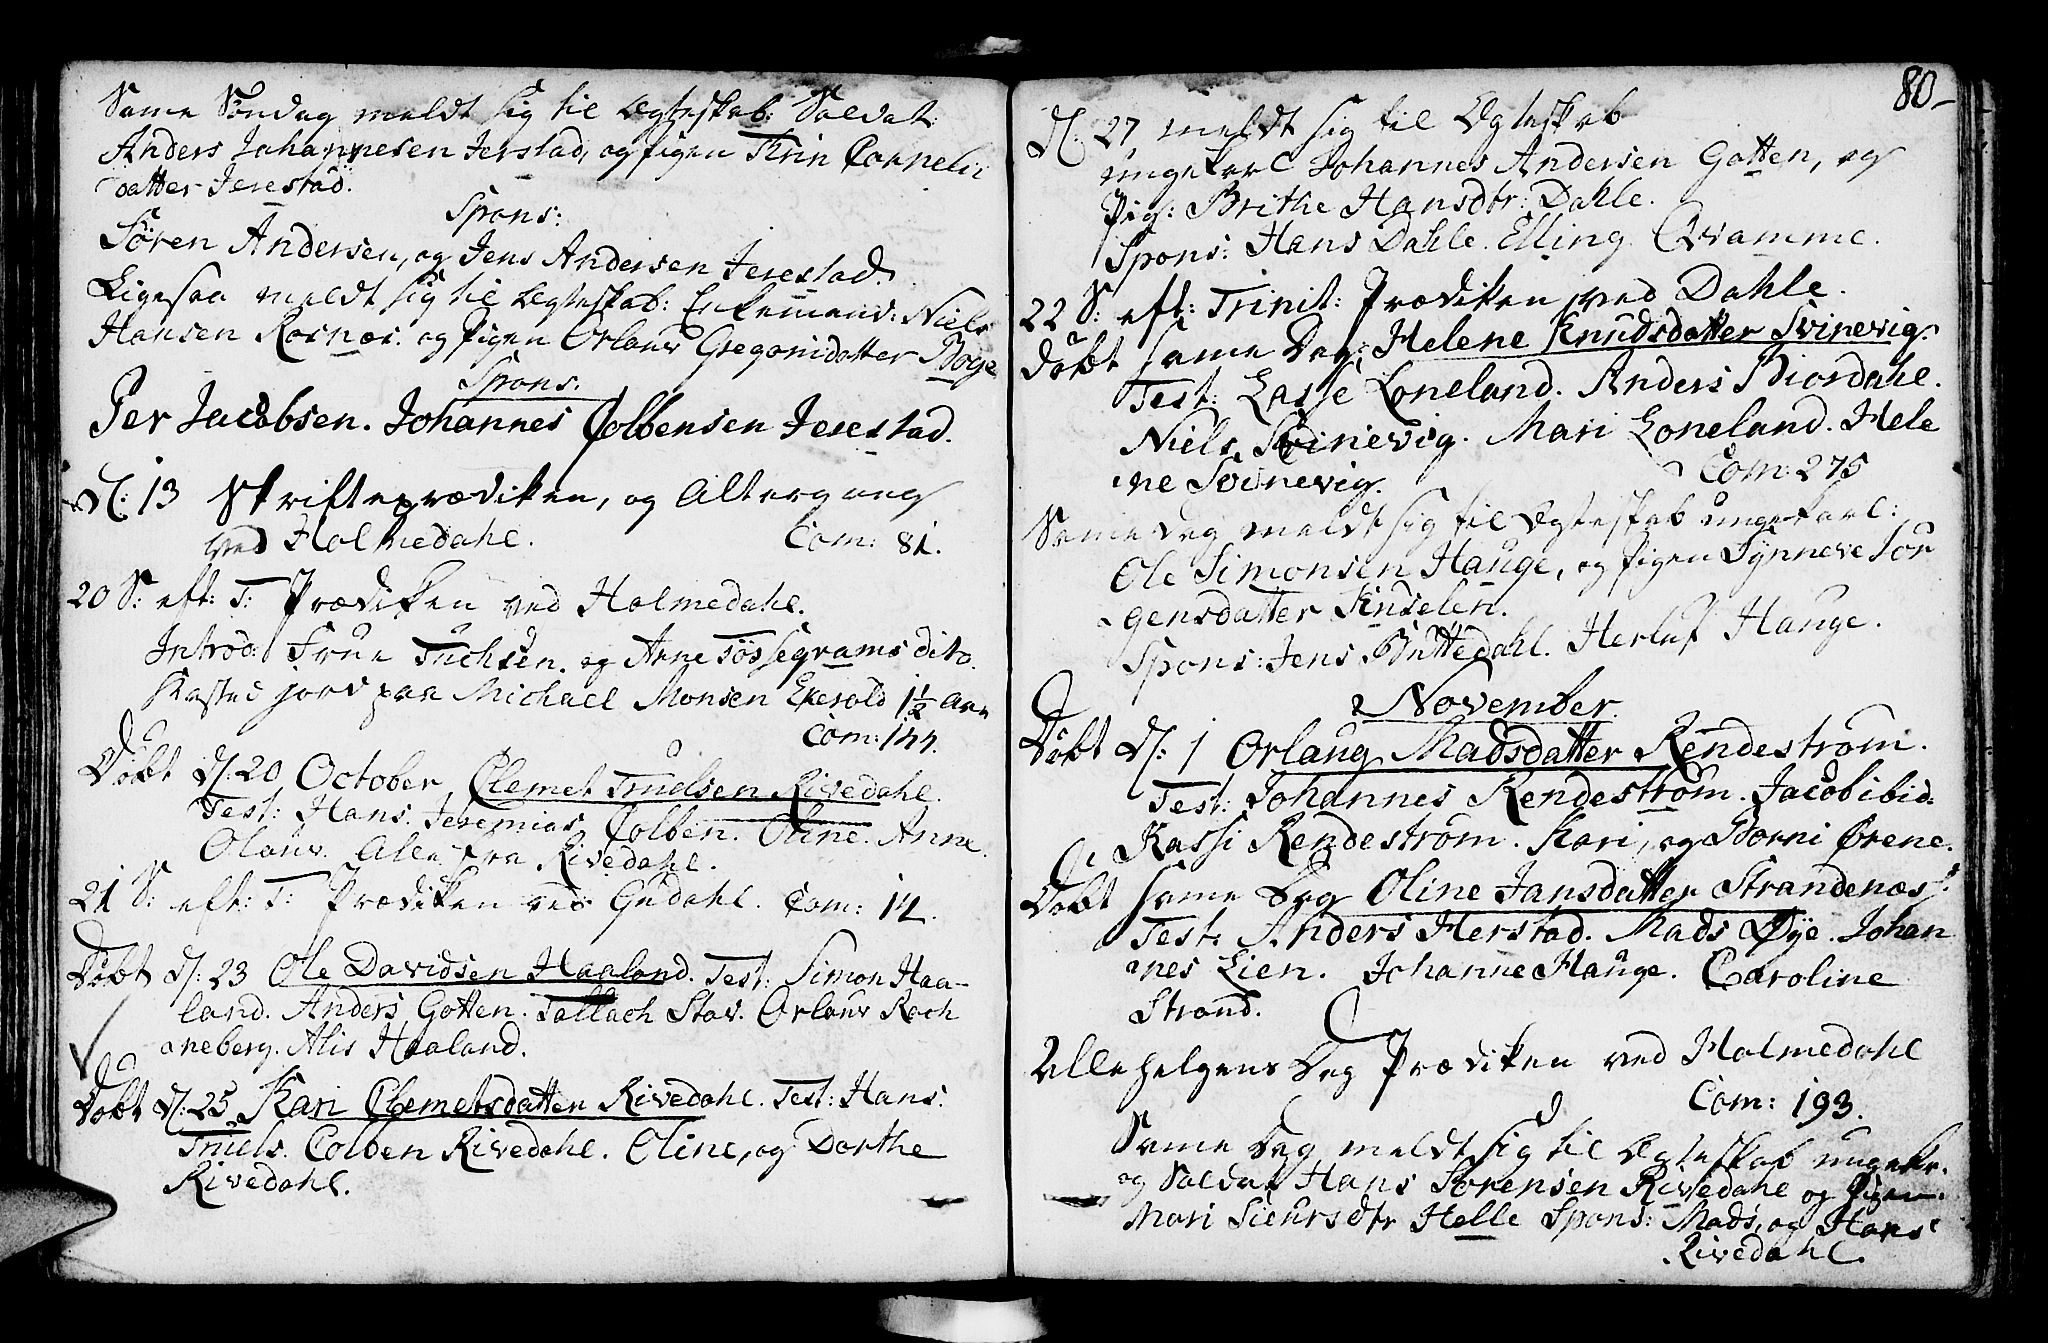 Same Søndag meldt sig til Ægteskab: Soldat:
Anders Johannesen Jerstad, og pigen Thrin Cornelii
datter Jerestad.
Spons:
Søren Andersen, og Jens Andersen Jerestad.
Ligesaa meldt sig til Ægteskab: Enkemand: Niels
Hansen Rosnæs. og Pigen Orlauv Gregorisdatter Bøge
Spons:
Per Jacobsen. Johannes Colbensen Jerestad.
D: 13 Skrifteprædiken, og Altergang
ved Holmedahl. Com: 81.
20 S: eft: T: Prædiken ved Holmedahl.
Introd: Frue Tuchsen. og Anne Tøssegrams dito.
Kasted jord paa Michael Monsen Exerold 1½ Aar
Com: 144.
Døbt D: 20 October Clemet Truelsen Rivedahl.
Test: Hans. Jeremias Colben. Oline. Anne
Olauv. Alle fra Rivedahl.
21 S: eft: T: Prædiken ved Gudahl. Com: 14.
Døbt D: 23 Ole Davidsen Haaland. Test: Simon Haa-
land. Anders Gotten. Tallach Stav. Orlauv Roch
neberg. Alis Haaland.
Døbt D: 25 Kari Clemetsdatter Rivedahl. Test: Hans.
Truels. Colben Rivedahl. Oline, og Dorthe
Rivedahl.
80-
D: 27 meldt sig til Ægteskab
ungekarl Johannes Andersen Gotten, og
Pig: Brithe Hansdtr: Dahle.
Spons: Hans Dahle. Elling Qvamme.
22 S: eft: Trinit: Prædiken ved Dahle.
Døbt same Dag: Helene Knudsdatter Svinevig.
Test: Lasse Loneland. Anders Biordahl.
Niels Svinevig. Mari Loneland. Hele
ne Svinevig. Com: 275
Same Dag meldt sig til Ægteskab ungekarl:
Ole Simonsen Hauge, og Pigen Synneve Jør
gensdatter Kuselen.
Spons: Jens Buttedahl. Herluf Hauge.
November
Døbt D: 1 Orlaug Madsdatter Rendestrøm.
Test: Johannes Rendestrøm. Jacob ibid:
Kassi Rendestrøm. Kari, og Gorni Ørene.
Døbt same Dag Oline Jansdatter Strandenæss:
Test: Anders Herstad. Mads Øye. Johan
nes Lien. Johanne Hauge. Caroline
Strand.
Allehelgens Dag Prædiken ved Holmedahl
Com: 193.
Same Dag meldt sig til Ægteskab ungekr.
og Soldat Hans Sørensen Rivedahl og Pigen
Mari Siursdtr Helle Spons: Mads, og Hans
Rivedahl.